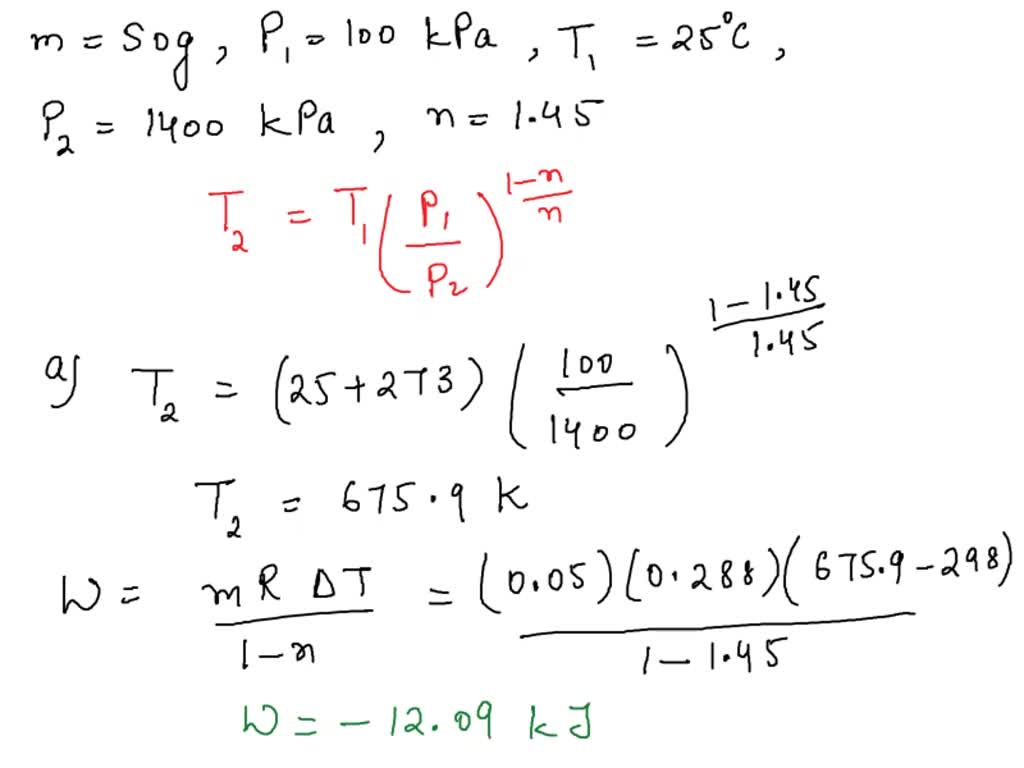 m = 50g, P₁ = 100 kPa, T₁ = 25°C,
P₂ = 1400 kPa, n = 1.45
T₂ = T₁ (P₁/P₂)^((1-n)/n)
a) T₂ = (25+273) (100/1400)^((1-1.45)/1.45)
T₂ = 675.9 K
W = mRΔT/(1-n) = (0.05)(0.288)(675.9-298)/(1-1.45)
W = -12.09 kJ